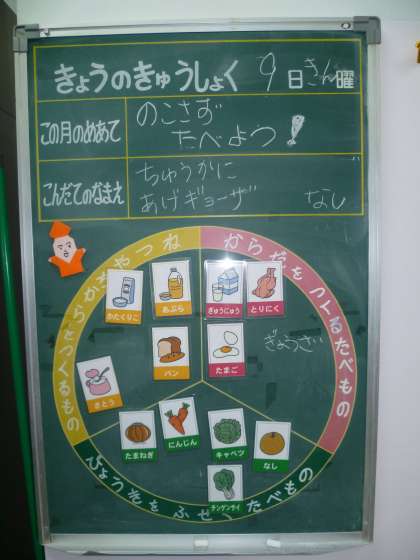 きょうのきゅうしょく 9日きん曜
この月のめあて
のこさず
たべよう!
こんだてのなまえ
ちゅうかに
あげギョーザ なし
ねつやちからをつくるもの
からだをつくるたべもの
かたくりこ
あぶら
ぎゅうにゅう
とりにく
パン
たまご
さとう
たまねぎ
にんじん
キャベツ
なし
チンゲンサイ
びょうきをふせぐたべもの